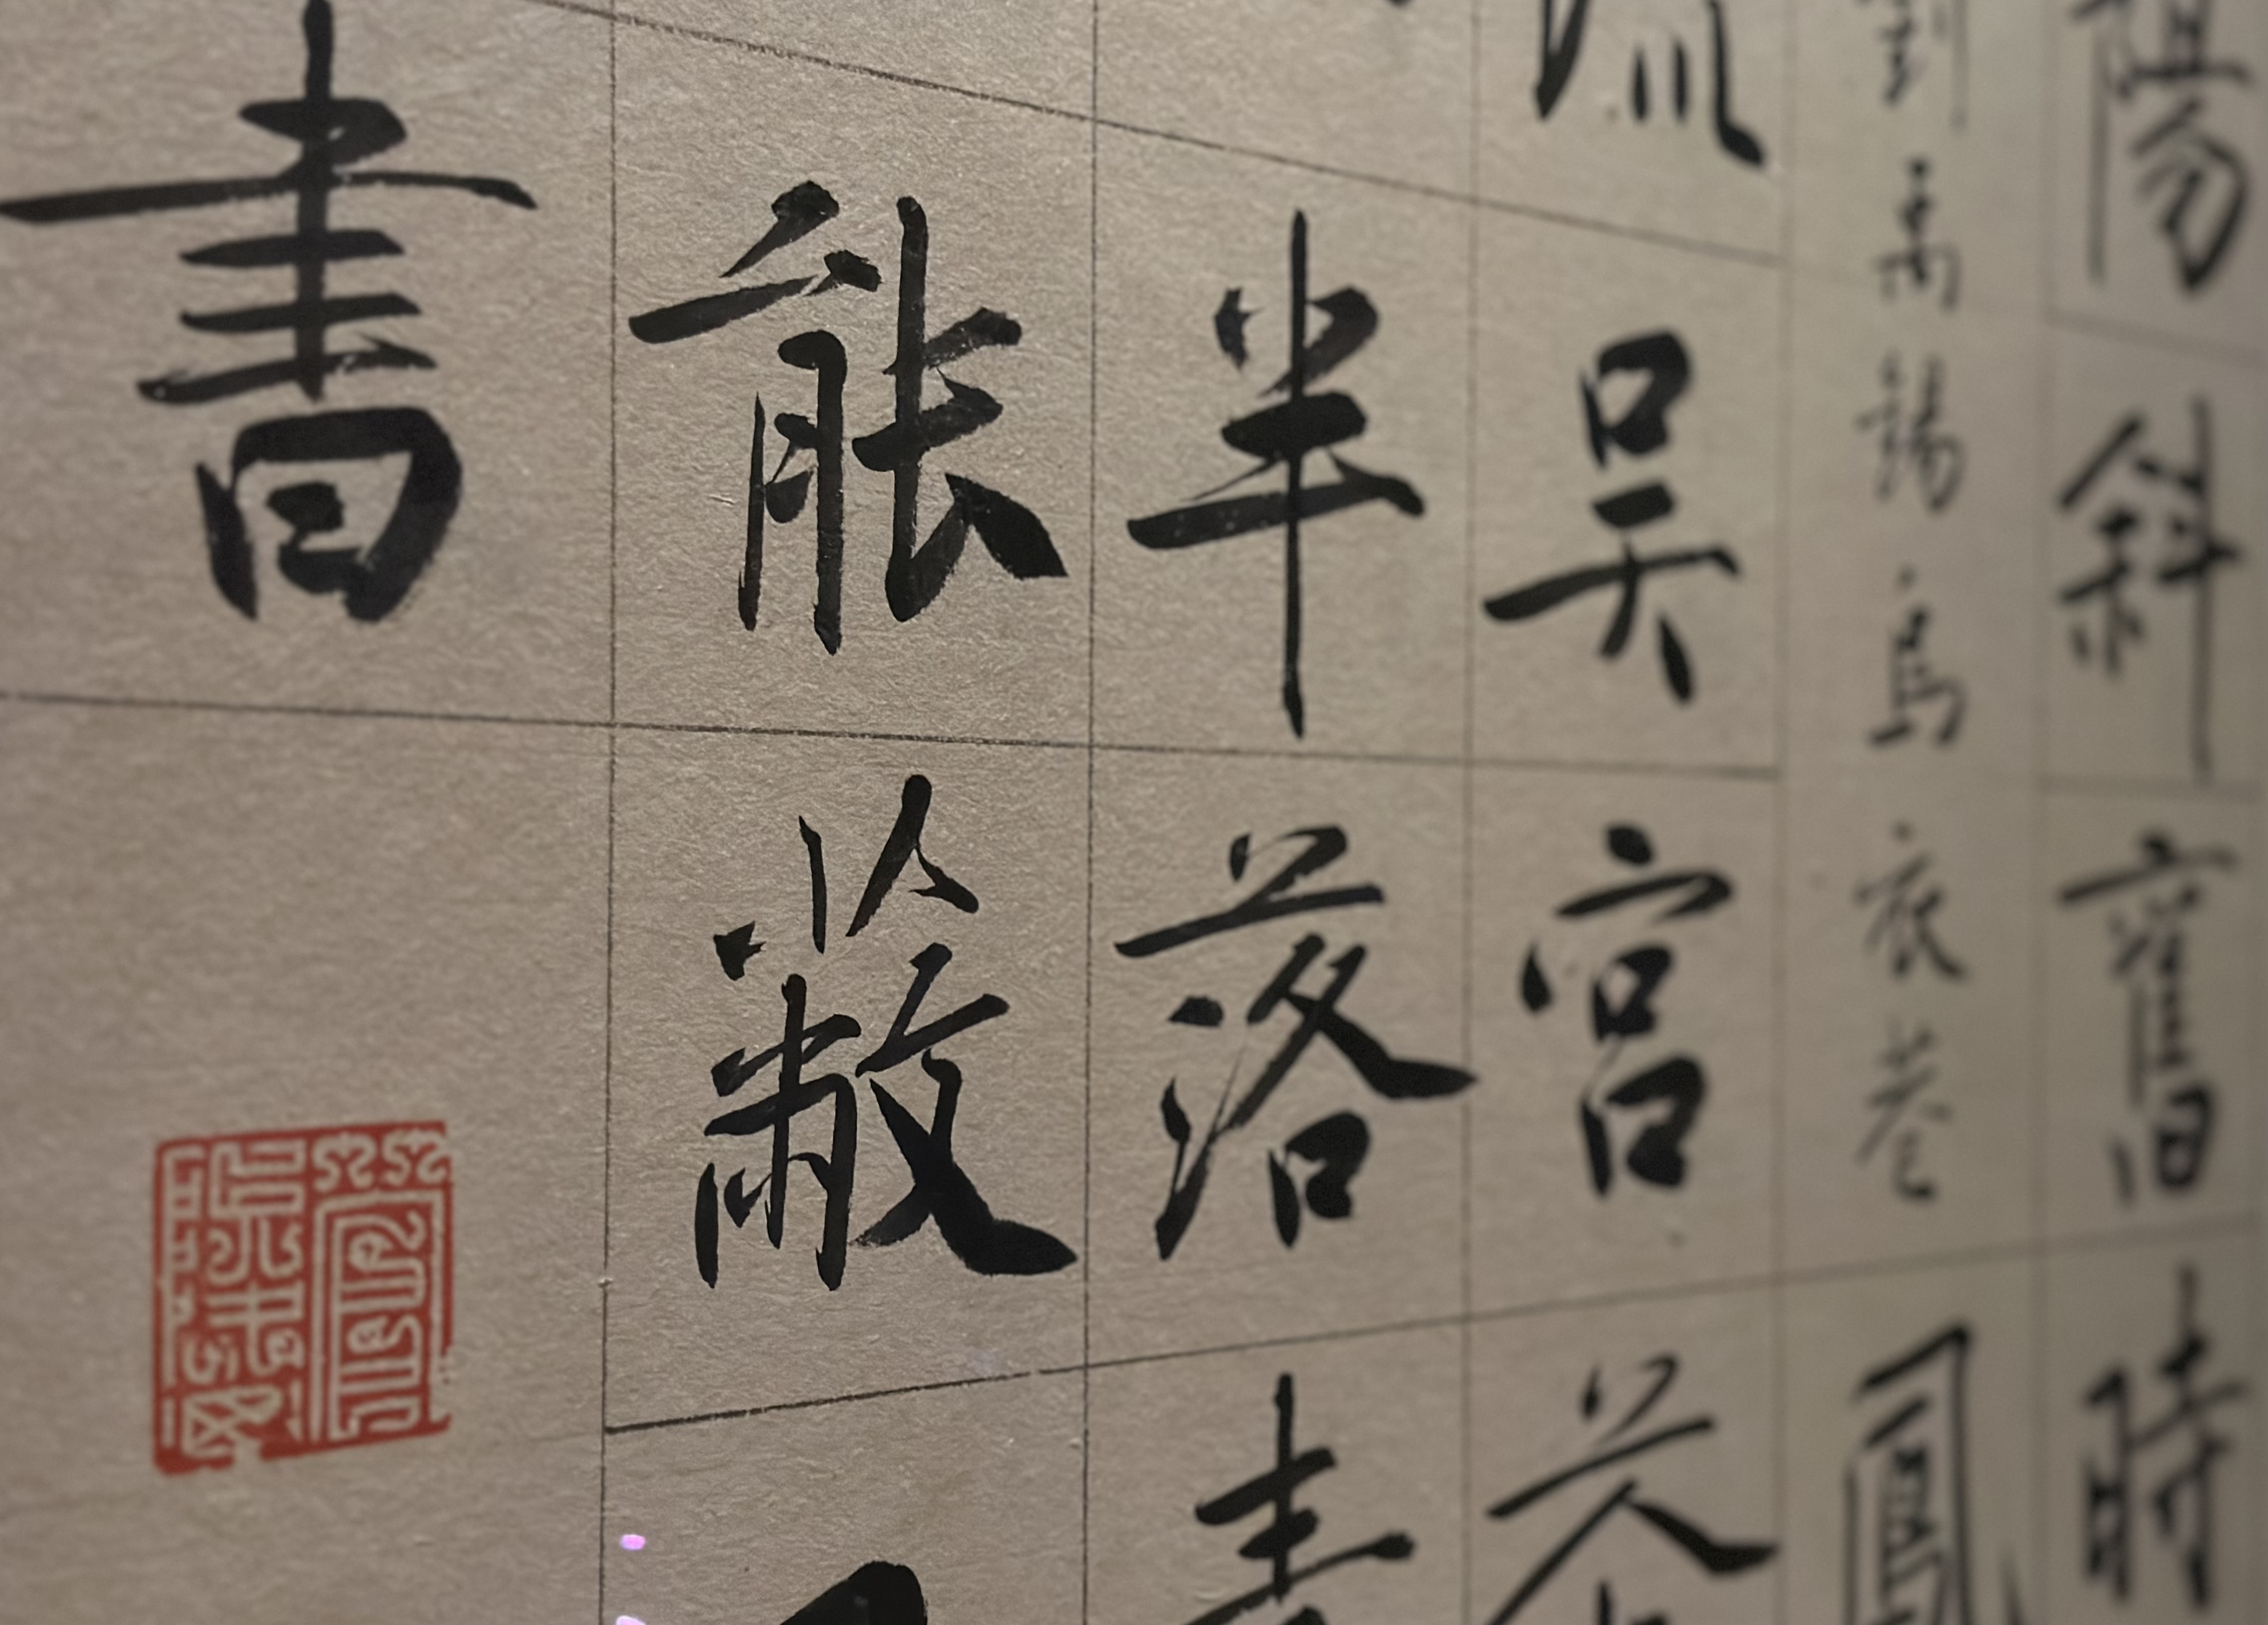 陽斜舊時
劉禹錫烏衣巷 鳳
流吳宮花
半落青
能蔽
書